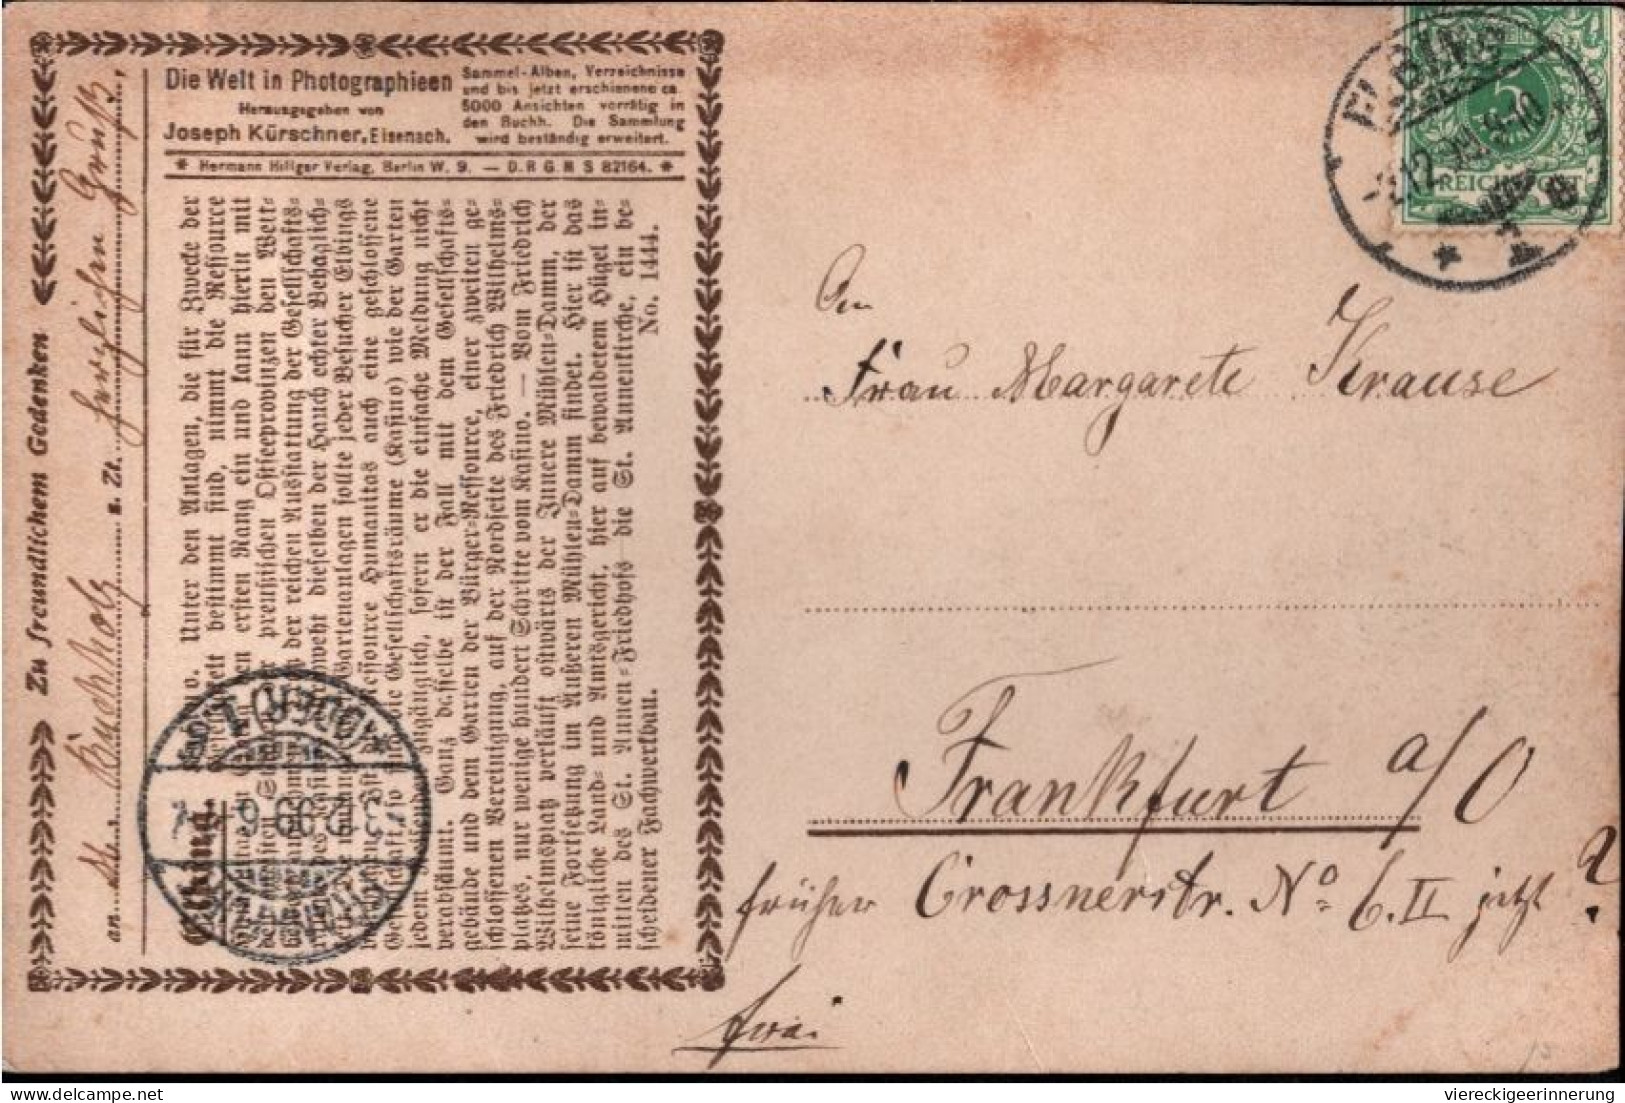 Zu freundlichem Gedenken
an
z. Zt.
herzlichen Gruß.
Die Welt in Photographieen
Herausgegeben von
Joseph Kürschner, Eisenach.
Sammel-Alben, Verzeichnisse
und bis jetzt erschienene ca.
5000 Ansichten vorrätig in
den Buchh. Die Sammlung
wird beständig erweitert.
* Hermann Hillger Verlag, Berlin W. 9. — D. R. G. M. S 82164. *
Unter den Anlagen, die für Zwecke der
bestimmt sind, nimmt die Ressource
ersten Rang ein und kann hierin mit
preußischen Ostseeprovinzen den Wett-
der reichen Ausstattung der Gesellschafts-
weht dieselben der Hauch echter Behaglich-
Gartenanlagen sollte jeder Besucher Elbings
Ressource Humanitas auch eine geschlossene
Gesellschaftsräume (Kasino) wie der Garten
jedem zugänglich, sofern er die einfache Meldung nicht
verabsäumt. Ganz dasselbe ist der Fall mit dem Gesellschafts-
gebäude und dem Garten der Bürger-Ressource, einer zweiten ge-
schlossenen Vereinigung, auf der Nordseite des Friedrich Wilhelms-
platzes, nur wenige hundert Schritte vom Kasino. — Vom Friedrich
Wilhelmsplatz verläuft ostwärts der Innere Mühlen-Damm, der
seine Fortsetzung im Äußeren Mühlen-Damm findet. Hier ist das
königliche Land- und Amtsgericht, hier auf bewaldetem Hügel in-
mitten des St. Annen-Friedhofs die St. Annenkirche, ein be-
scheidener Fachwerkbau.
No. 1444.
ELBING
12.99.9-10
REICHSPOST
5
(ODER)
3.12.99.6-7
An
Frau Margarete Krause
Frankfurt a/O
früher Crossnerstr. No 6. II jetzt?
frei
viereckigeerinnerung